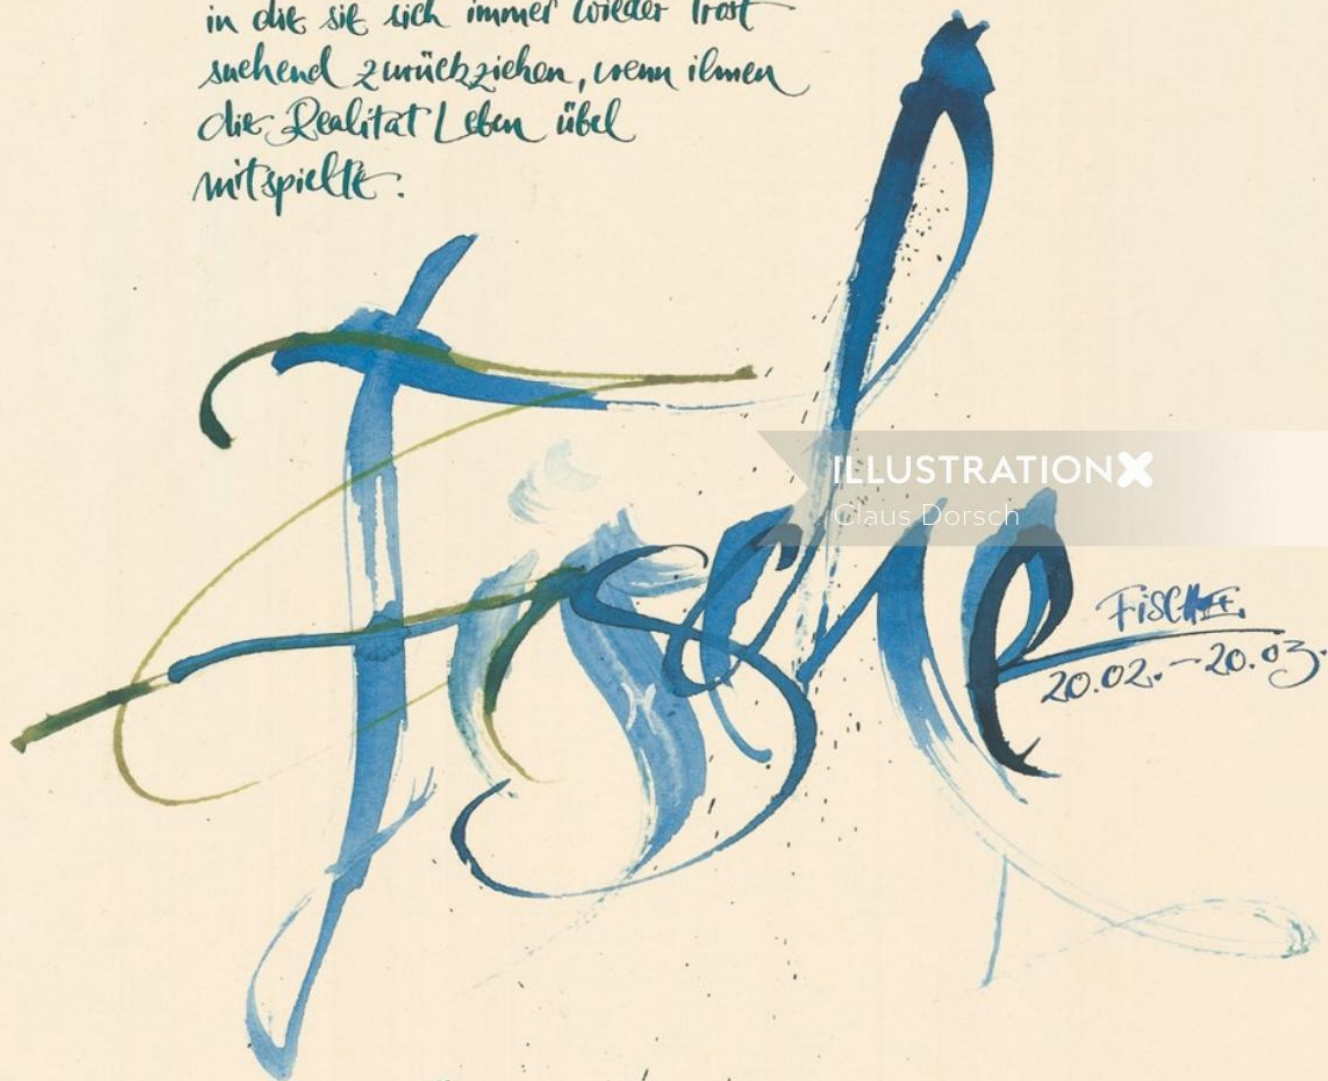 in die sie sich immer wieder Trost
suchend zurückziehen, wenn ihnen
die Realität Leben übel
mitspielte.
Fische
ILLUSTRATIONX
Claus Dorsch
FiSCHE
20.02. – 20.03.